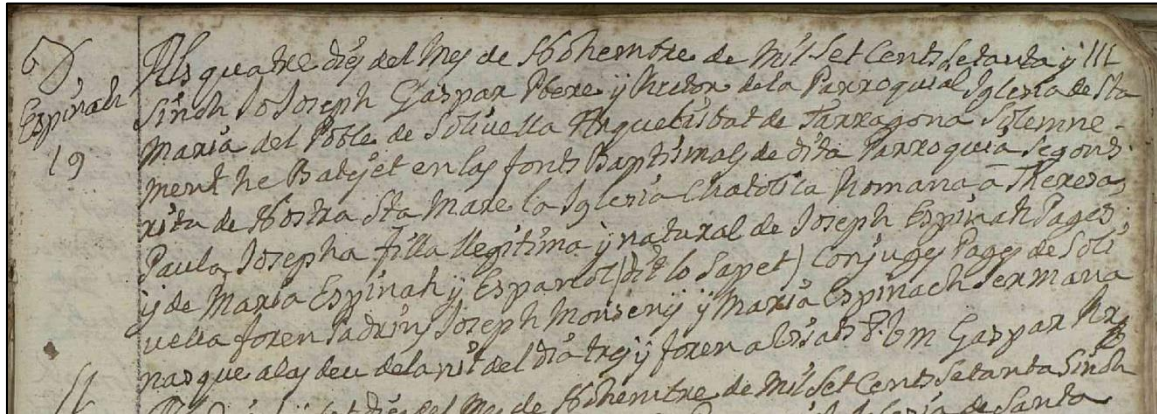 6
Espinah
19
Als quatre dies del Mes de Nohembre de Mil Set Cents Setanta y
Sinch Jo Joseph Gaspar Pbere ÿ Rector de la Parroquial Iglesia de Sta
Maria del Poble de Solivella Arquebisbat de Tarragona Solemne-
ment he Batejet en las fonts Baptismals de dita Parroquia segons
ritu de Nostra Sta Mare la Iglesia Chatolica Romana â Theresa
Paula Josepha filla llegitima ÿ natural de Joseph Espinah Pages
ÿ de Maria Espinah ÿ Español (dit lo Sapet) Conjuges Pages de Soli
vella foren Padrins Joseph Monsenÿ ÿ Maria Espinach Germana
nasque a las deu de la nit del dia tres ÿ foren avisats Gaspar Rr
dies del Mes de Nohembre de Mil Set Cents Setanta Sinch
Iglesia de Santa